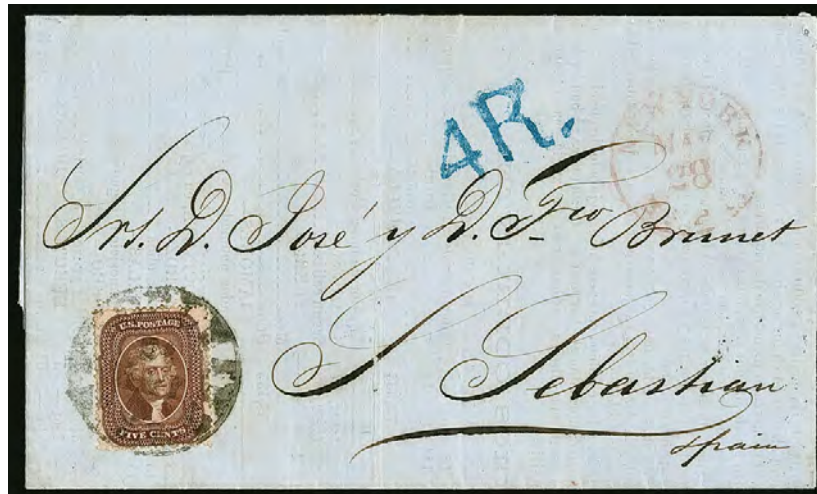 4R.
NEW YORK
28
Srs. D. José y D. Fco Brunet
S. Sebastian
Spain
U.S. POSTAGE
FIVE CENTS